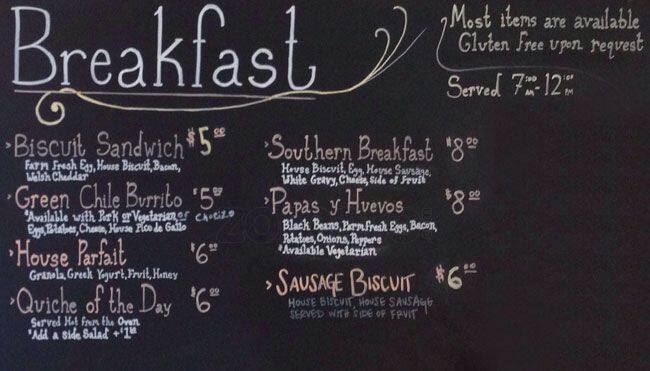 Breakfast
Most items are available
Gluten Free upon request
Served 7:00 AM - 12:00 PM
>Biscuit Sandwich $5.00
Farm Fresh Egg, House Biscuit, Bacon,
Welsh Cheddar
>Green Chile Burrito $5.00
*Available with Pork or Vegetarian or Chorizo
Eggs, Potatoes, Cheese, House Pico de Gallo
>House Parfait $6.00
Granola, Greek Yogurt, Fruit, Honey
>Quiche of the Day $6.00
Served Hot from the Oven
*Add a Side Salad +$1.50
>Southern Breakfast $8.00
House Biscuit, Egg, House Sausage,
White Gravy, Cheese, Side of Fruit
>Papas y Huevos $8.00
Black Beans, Farm Fresh Eggs, Bacon,
Potatoes, Onions, Peppers
*Available Vegetarian
>Sausage Biscuit $6.00
House Biscuit, House Sausage
Served with side of fruit